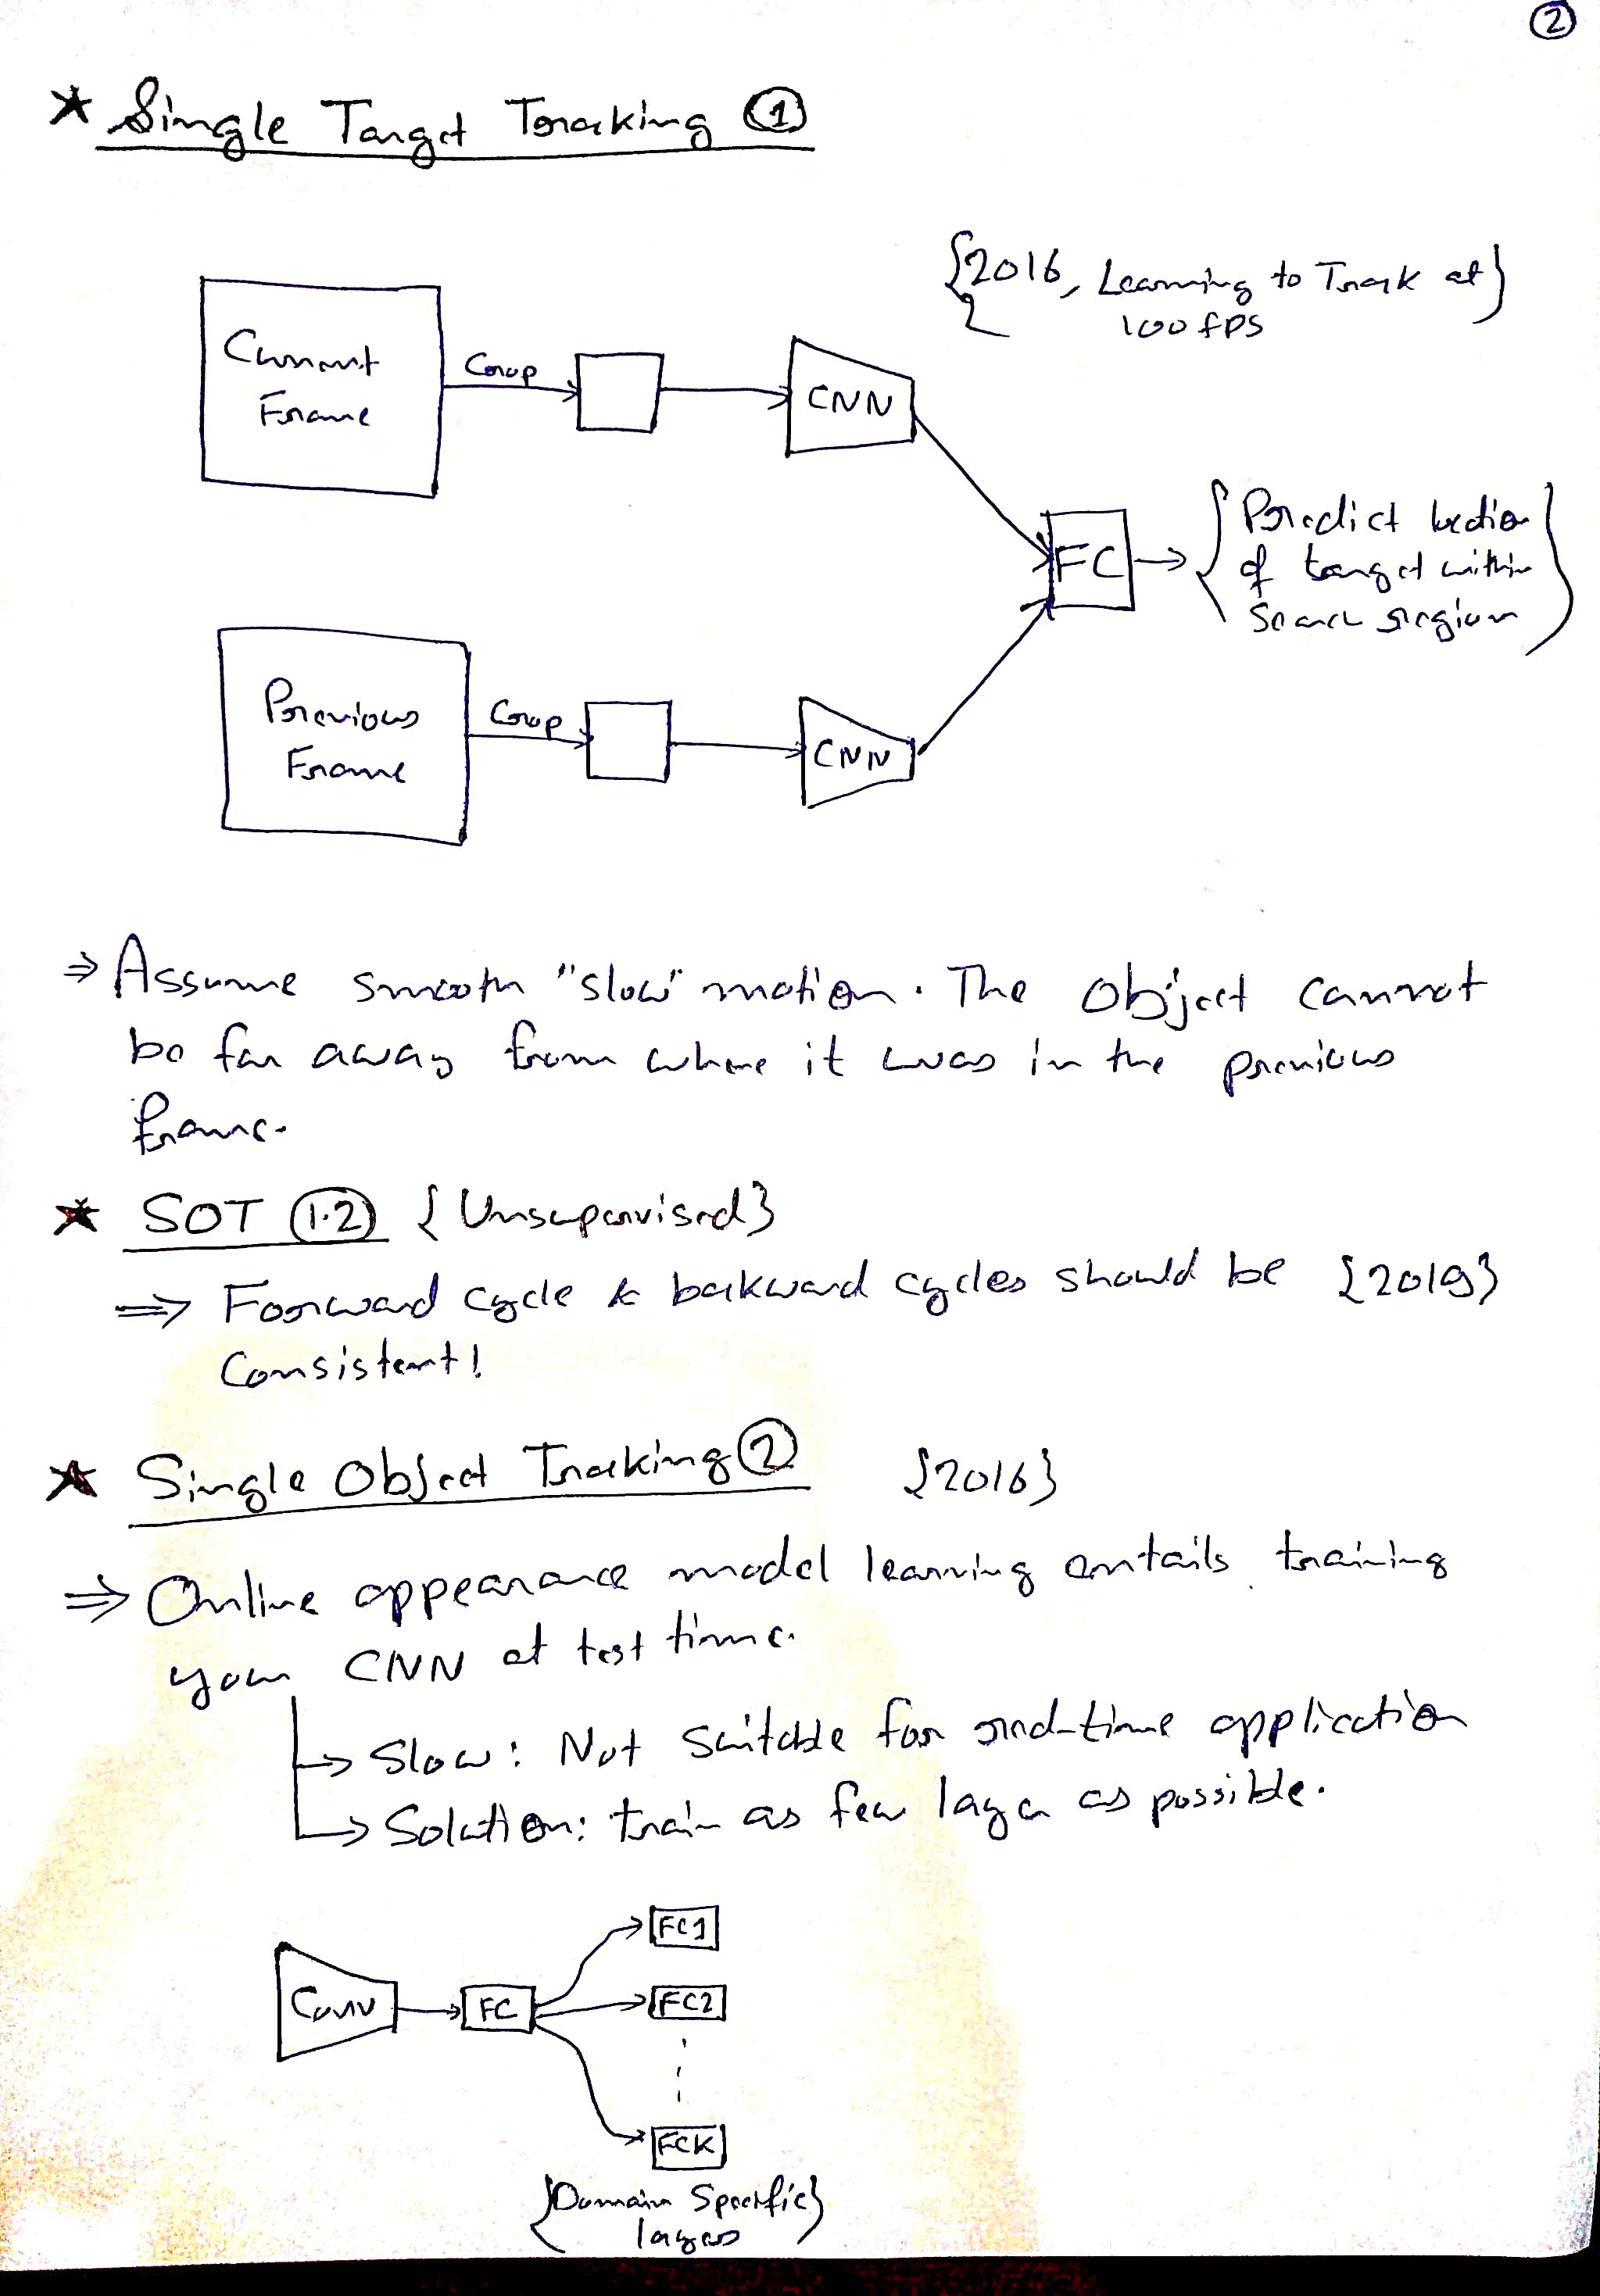 ②
* Single Target Tracking ①
{2016, Learning to Track at}
100 fps
Current
Frame
Crop
CNN
FC
{Predict location
of target within
Search region}
Previous
Frame
Crop
CNN
⇒ Assume smooth "slow" motion. The object cannot
be far away from where it was in the previous
frame.
* SOT (1.2) {Unsupervised}
⇒ Forward cycle & backward cycles should be {2019}
Consistent!
* Single Object Tracking ② {2016}
⇒ Online appearance model learning entails training
your CNN at test time.
→ Slow: Not suitable for real-time application
→ Solution: train as few layer as possible.
FC1
Conv
FC
FC2
FCK
{Domain Specific}
layers